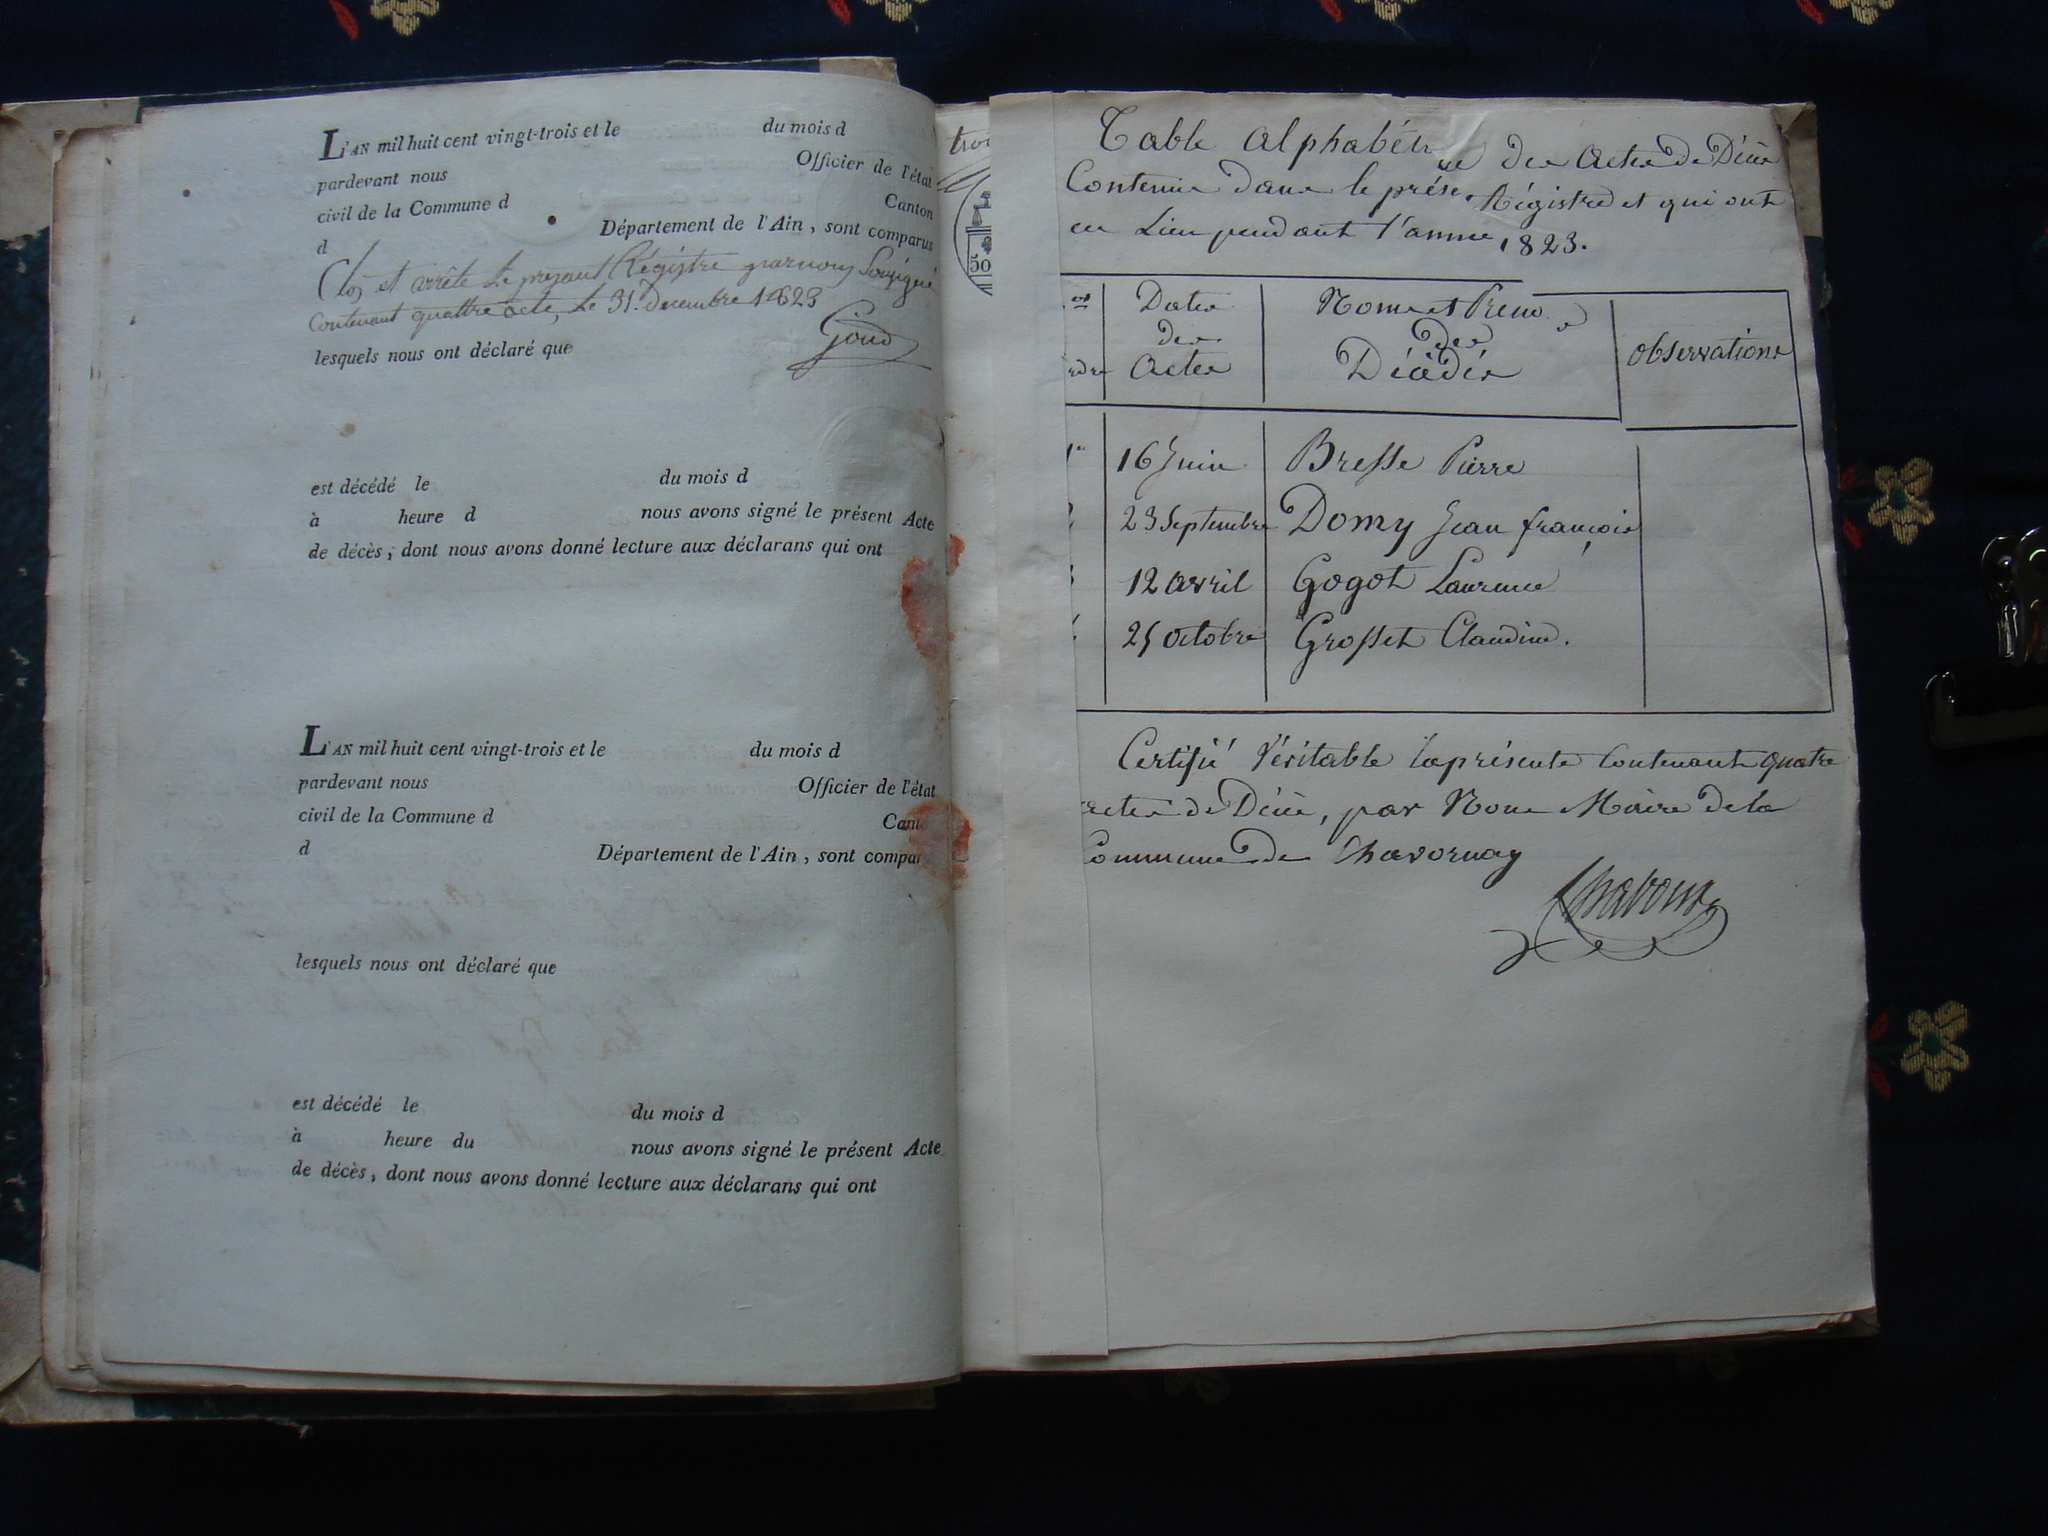 L'AN mil huit cent vingt-trois et le du mois d
pardevant nous Officier de l'état
civil de la Commune d Canton
d Département de l'Ain, sont comparus
Clos et arrêté le present Régistre parnous Soussigné
Contenant quattre acte, le 31. Decembre 1823
lesquels nous ont déclaré que
est décédé le du mois d
à heure d nous avons signé le présent Acte
de décès, dont nous avons donné lecture aux déclarans qui ont
L'AN mil huit cent vingt-trois et le du mois d
pardevant nous Officier de l'état
civil de la Commune d Cant
d Département de l'Ain, sont compar
lesquels nous ont déclaré que
est décédé le du mois d
à heure du nous avons signé le présent Acte
de décès, dont nous avons donné lecture aux déclarans qui ont
50
Table Alphabét ue des Actes de Décès
Contenus dans le prése Régistre et qui ont
eu Lieu pendant l'année 1823.
Dates
des
Actes
Noms et Prenoms
des
Décédés
Observations
16 Juin Bresse Pierre
23 Septembre Domy Jean françois
12 avril Gogot Laurence
25 octobre Grosset Claudine.
Certifié Véritable la présente Contenant quatre
actes de Décès, par Nous Maire de la
Commune de Chavornay